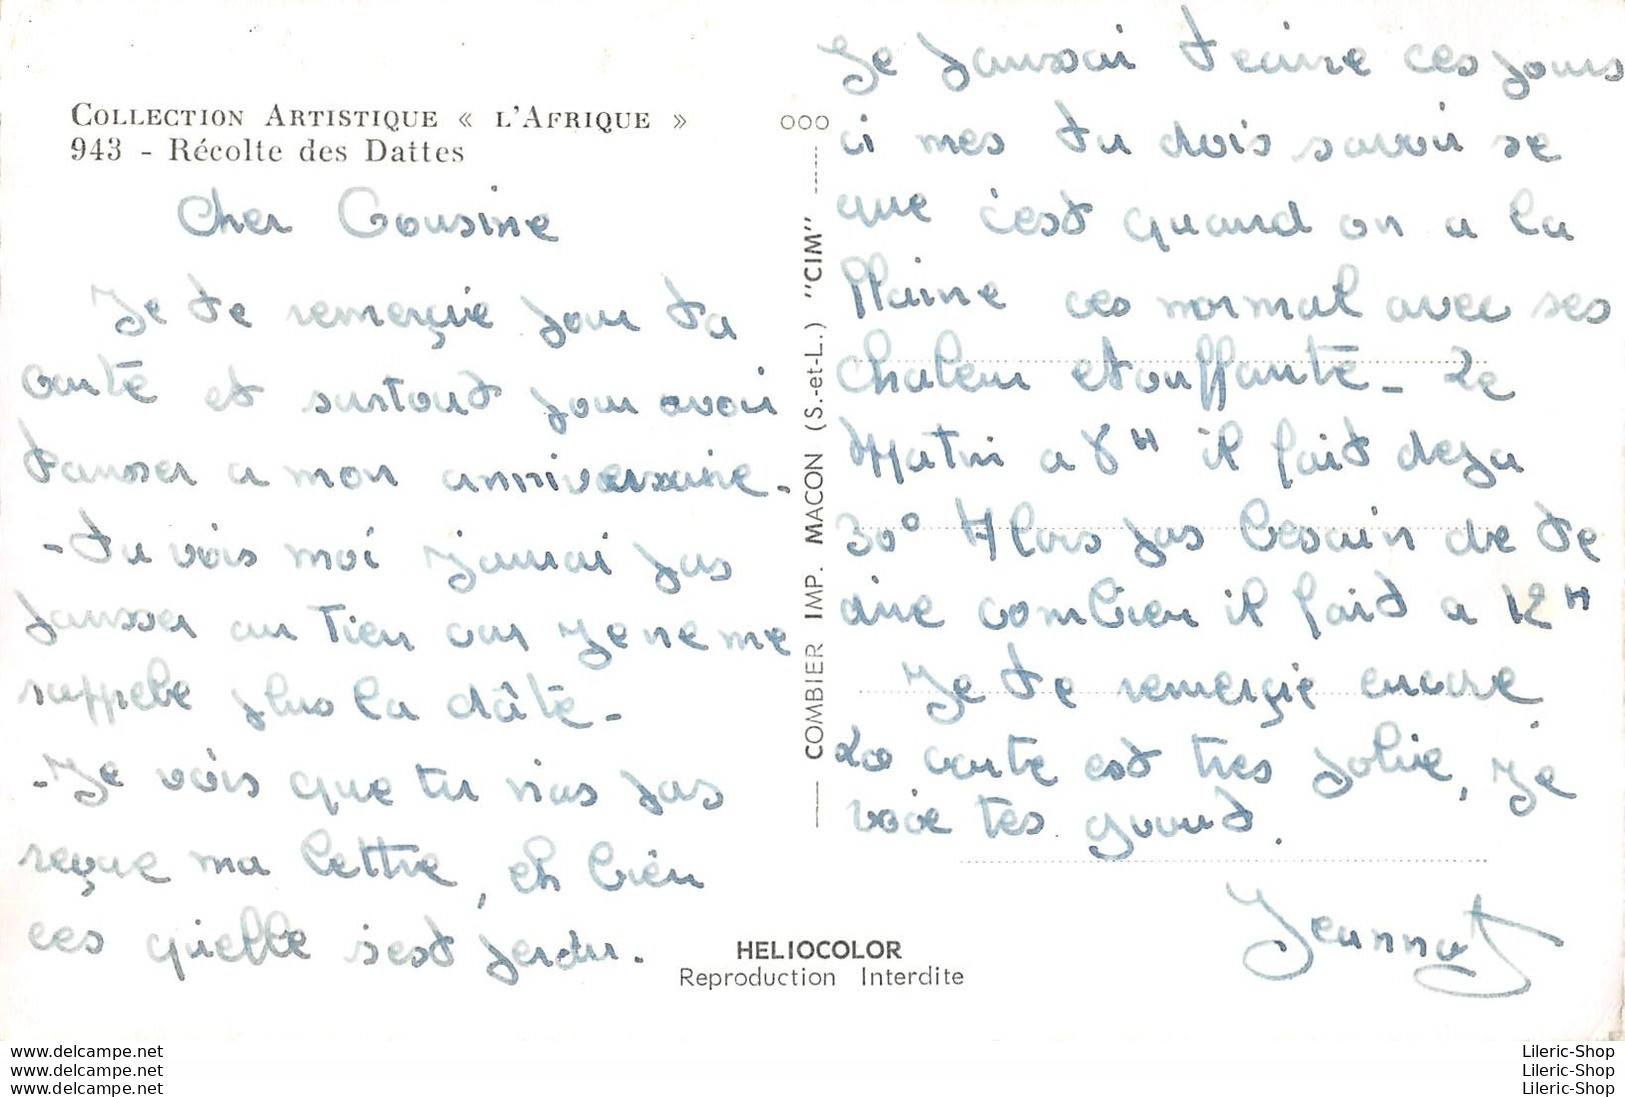 COLLECTION ARTISTIQUE « L'AFRIQUE »
943 - Récolte des Dattes
Cher Cousine
Je te remerçie pour ta
carte et surtout pour avoir
panser a mon anniversaire -
- tu vois moi j'amai pas
pansser au tien car je ne me
rappele plus la dâte -
- Je vois que tu n'as pas
reçue ma lettre, eh bien
ces qu'elle s'est perdu.
ooo
COMBIER IMP. MACON (S.-et-L.) "CIM"
Je pansai ces jours
ci mes tu dois savoir se
que c'est quand on a la
ces normal avec ses
chaleur etouffante - Le
Matin a 8H il fait deja
30° Alors pas besoin de te
dire combien il fait a 12H
Je te remerçie encore
La carte est tres jolie, je
voie tes gouut.
Jeannot
HELIOCOLOR
Reproduction Interdite
www.delcampe.net
www.delcampe.net
www.delcampe.net
Lileric-Shop
Lileric-Shop
Lileric-Shop